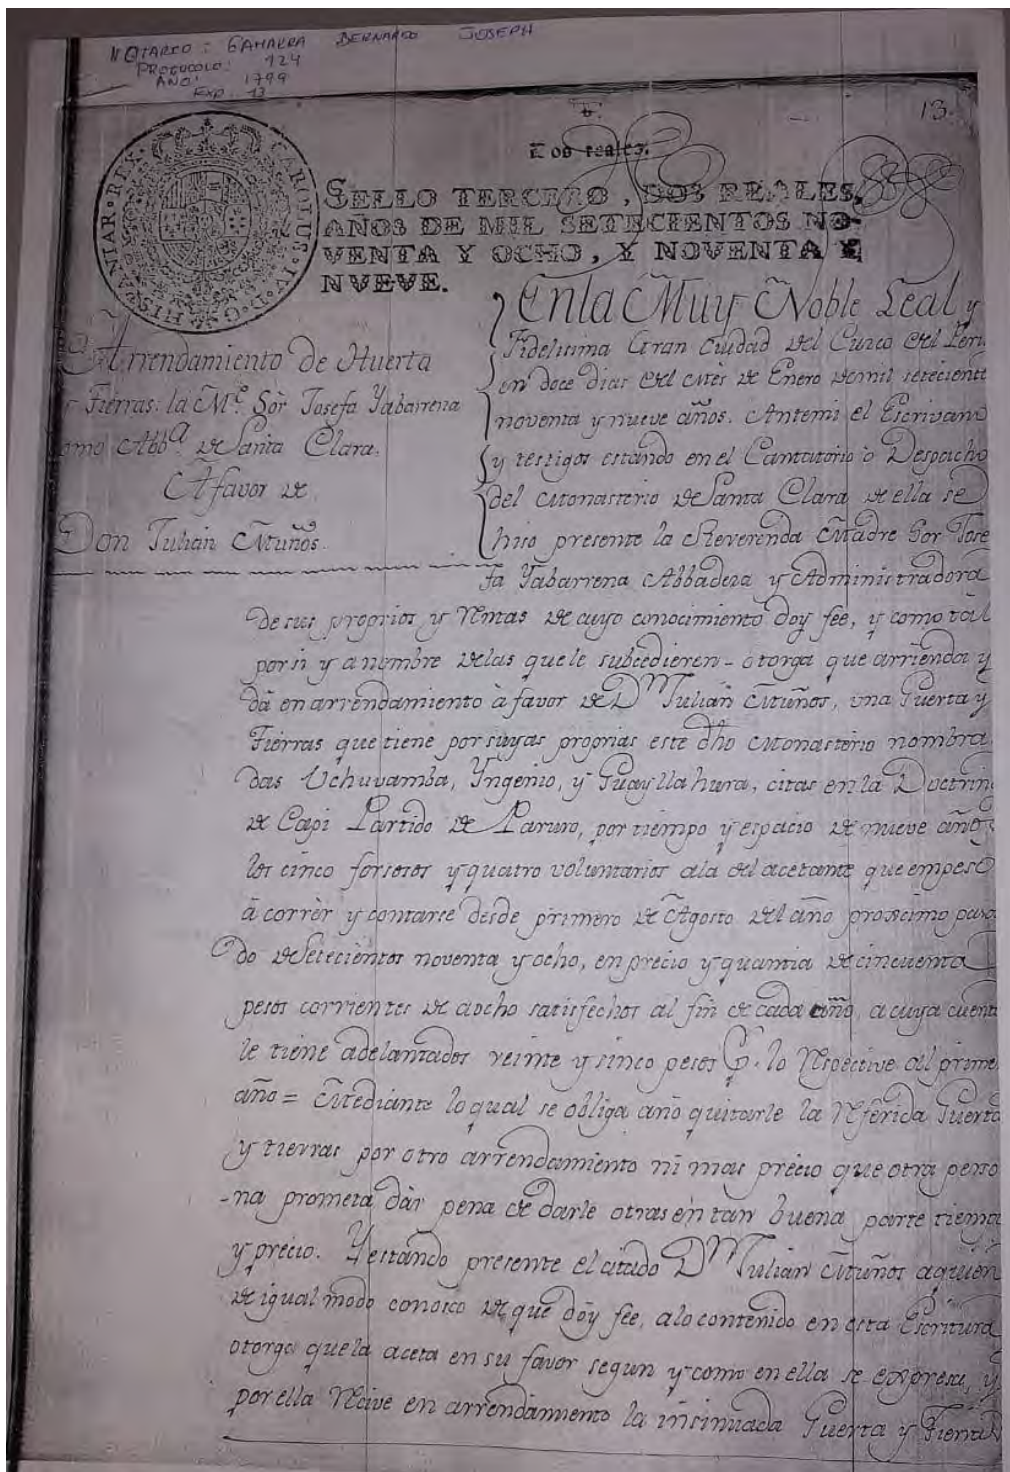 NOTARIO: GAMARRA BERNARDO JOSEPH
PROTOCOLO: 124
AÑO: 1799
Exp. 13
13.
Dos reales.
CAROLUS·IV·D·G·HISPANIAR·REX·
SELLO TERCERO, DOS REALES,
AÑOS DE MIL SETECIENTOS NO-
VENTA Y OCHO, Y NOVENTA Y
NVEVE.
Arrendamiento de Huerta
y Tierras: la Me. Sor Josefa Yabarrena
como Abba. de Santa Clara.
A favor de
Don Julian Muños.
En la Muy Noble Leal y
Fidelisima Gran Ciudad del Cuzco del Peru
en doce dias del mes de Enero de mil setecient
noventa y nueve años. Antemi el Escrivano
y testigos estando en el Cantatorio o Despacho
del Monasterio de Santa Clara de ella se
hiso presente la Reverenda Madre Sor Jose
fa Yabarrena Abbadeza y Administradora
de sus proprios y Rentas de cuyo conocimiento doy fee, y como tal
por si y a nombre delas que le subcedieren - otorga que arrienda y
dá en arrendamiento à favor de Dn Julian Muños, una Guerta y
Tierras que tiene por suyas proprias este dho Monasterio nombra
das Uchuvamba, Yngenio, y Guayllahura, citas en la Doctrin
de Capi Partido de Paruro, por tiempo y espacio de nueve años
los cinco forsosos y quatro voluntarios ala del acetante que empesó
à corrèr y contarse desde primero de Agosto del año procsimo pasa
do de Setecientos noventa y ocho, en precio y quantia de cincuenta
pesos corrientes de aocho satisfechos al fin de cada año, a cuya cuenta
le tiene adelantados veinte y sinco pesos P. lo Respective al prime
año = Mediante lo qual se obliga año quitarle la Referida Guerta
y tierras por otro arrendamiento ni mas precio que otra perso
-na prometa dàr pena de darle otras en tan buena parte tiempo
y precio. Y estando presente el citado Dn Julian Muños aquien
de igual modo conosco de que dóy fee, alo contenido en esta Escritura
otorgo que la aceta en su favor segun y como en ella se expresa, y
por ella Recive en arrendamiento la insinuada Guerta y Tierras